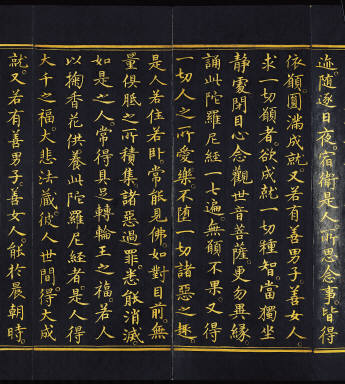 迹。隨逐日夜。宿衛是人。所思念事。皆得
依願圓滿成就。又若有善男子善女人。
求一切願者。欲成就一切種智。當獨坐
靜處閉目。心念觀世音菩薩更勿異緣。
誦此陀羅尼經一七遍。無願不果。又得
一切人之所愛樂。不墮一切諸惡之趣。
是人若住若卧。當能見佛。如對目前。無
量俱胝之所積集。諸惡過罪悉能消滅
如是之人。當得具足轉輪王之福。若人
以掬香花供養此陀羅尼經者。是人得
大千之福。大悲法藏。彼人世間。得大成
就。又若有善男子。善女人。能於晨朝時。